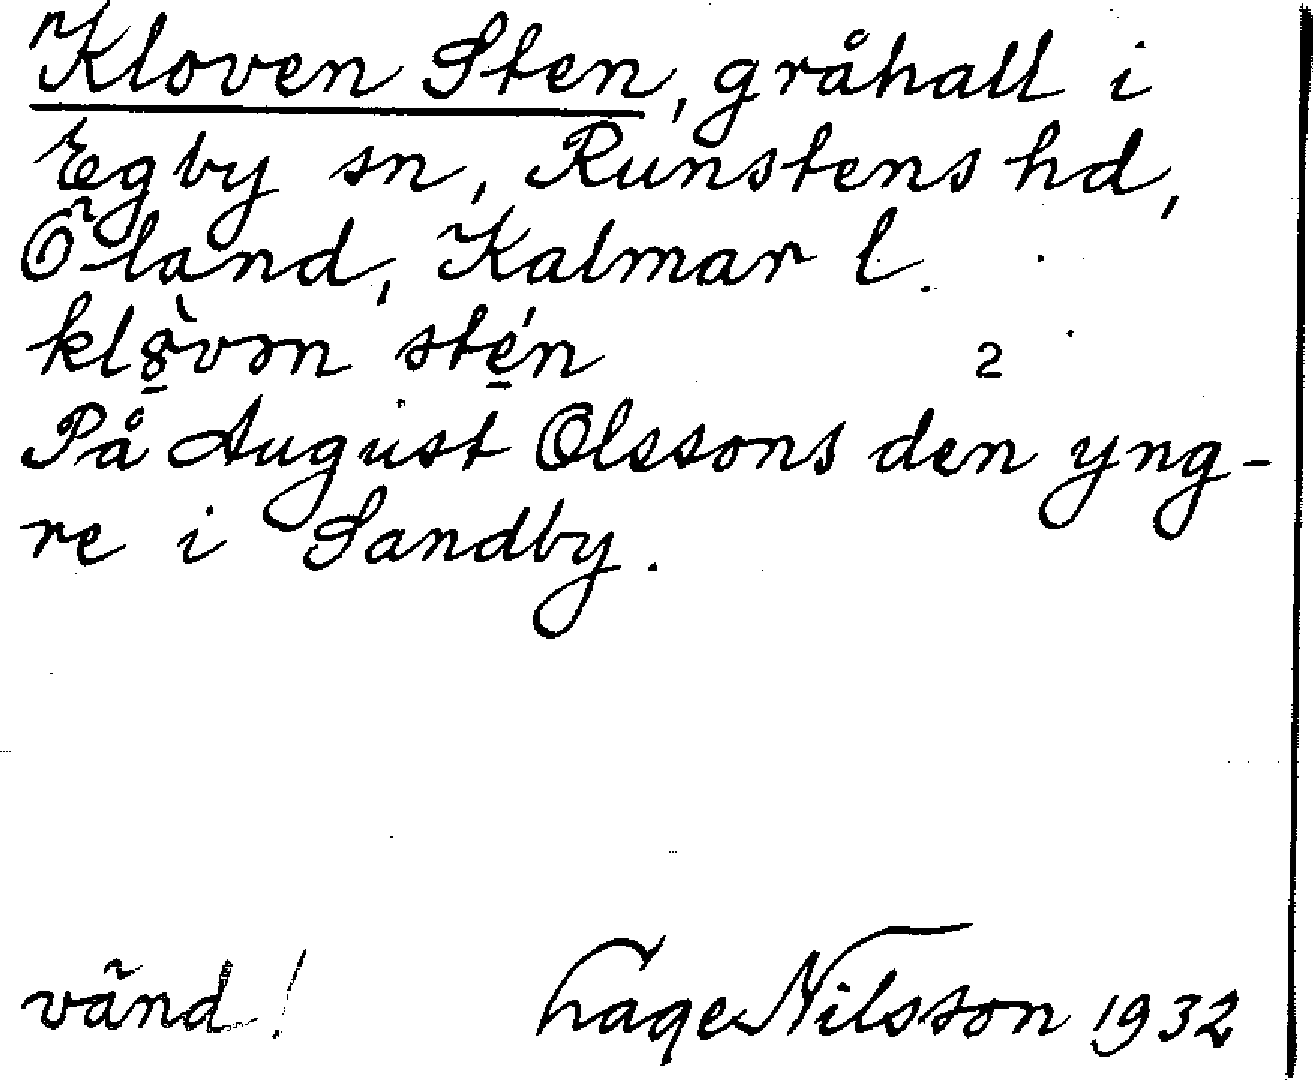 Kloven Sten, gråhall i
Egby sn, Runstens hd,
Öland, Kalmar l.
klò̱vən sté̱n 2
På August Olssons den yng-
re i Sandby.
vänd! Lage Nilsson 1932